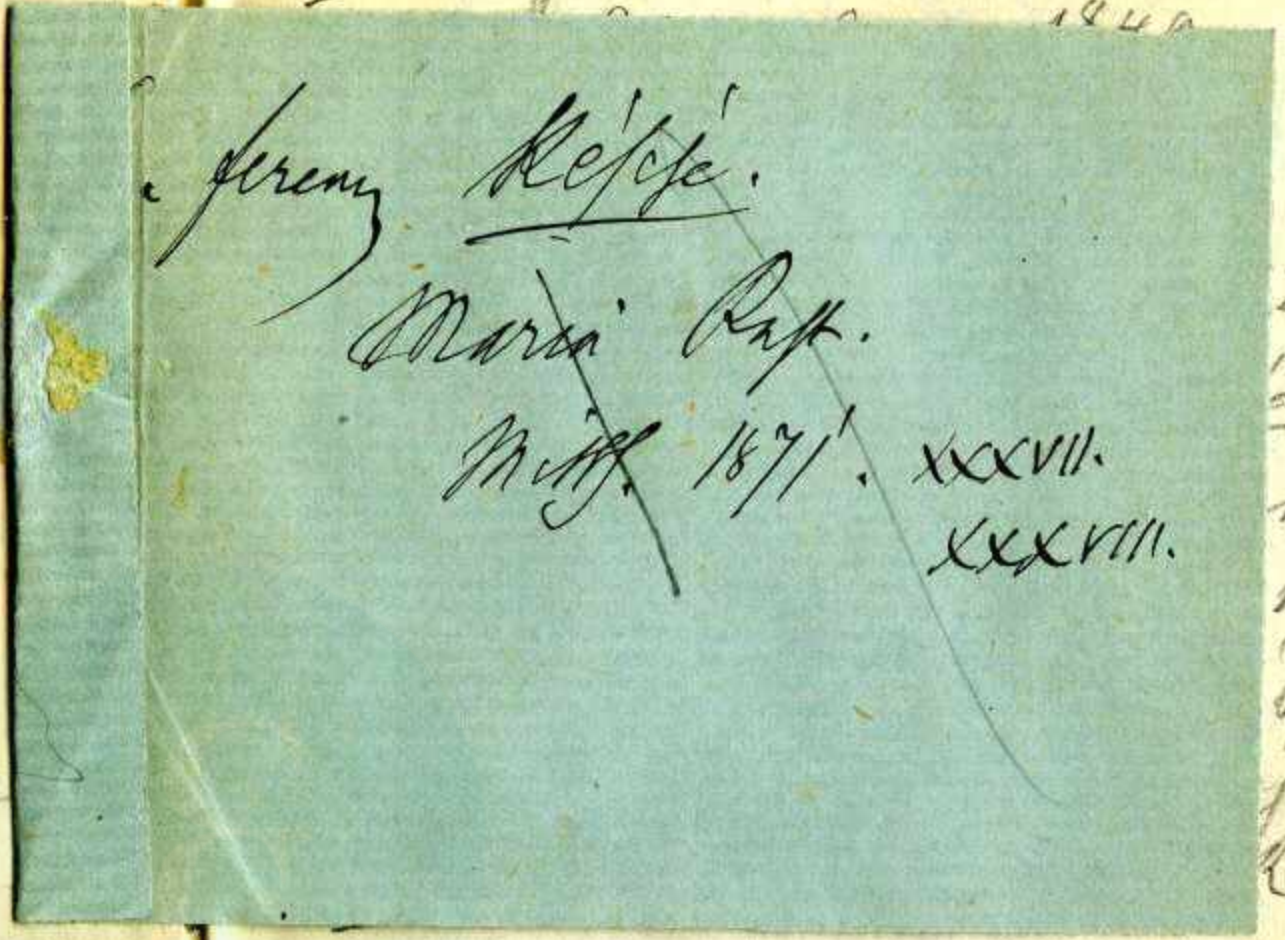 ferenz Késché.
Maria Rast.
Mitth. 1871. XXXVII.
XXXVIII.